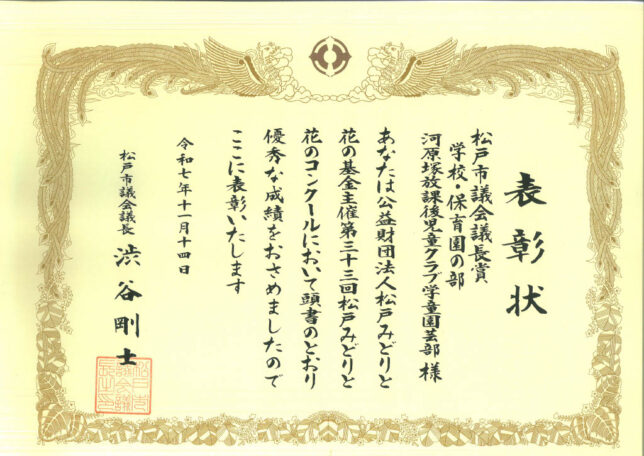 表彰状
松戸市議会議長賞
学校・保育園の部
河原塚放課後児童クラブ学童園芸部 様
あなたは公益財団法人松戸みどりと
花の基金主催第三十三回松戸みどりと
花のコンクールにおいて頭書のとおり
優秀な成績をおさめましたので
ここに表彰いたします
令和七年十一月十四日
松戸市議会議長 渋谷剛士